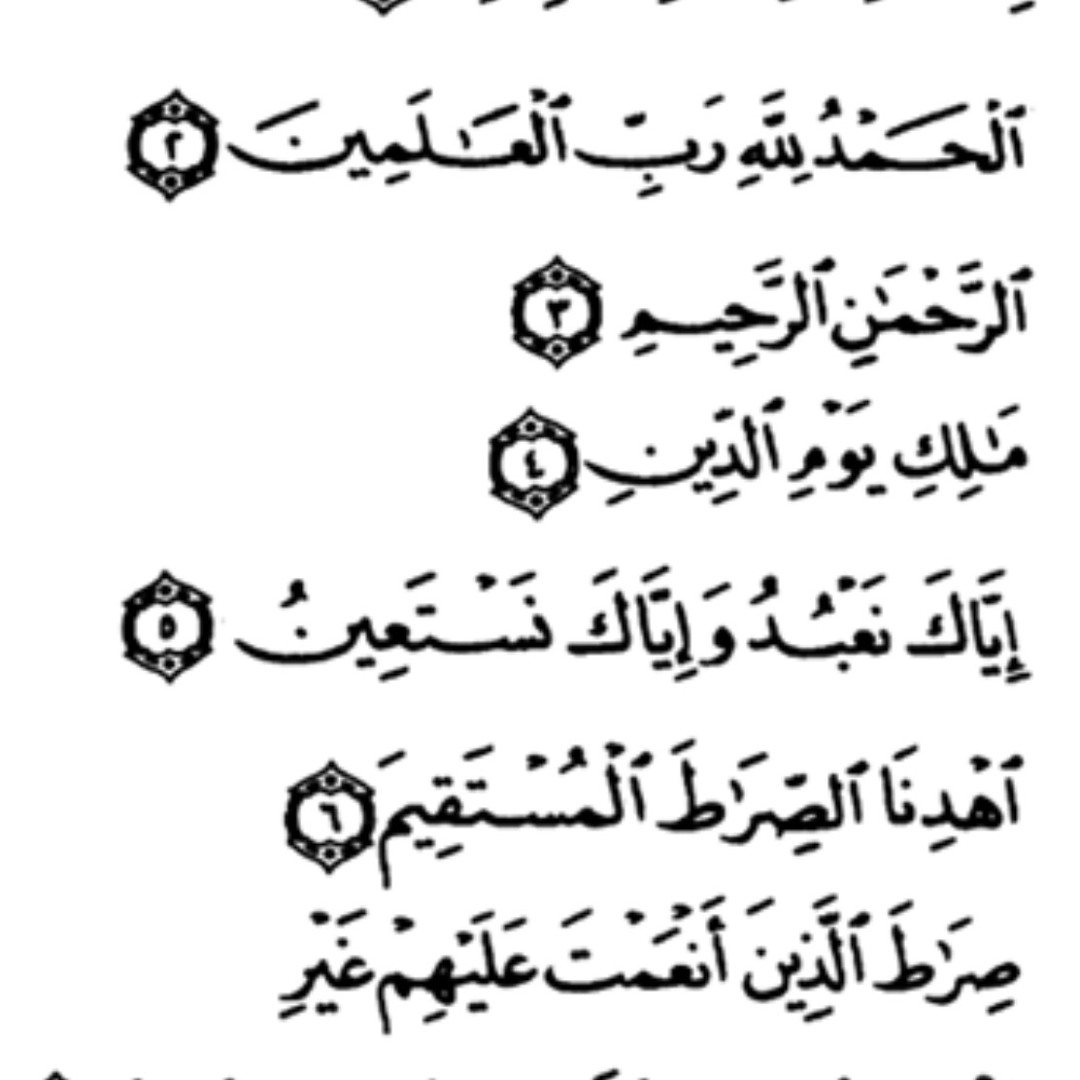 ٱلْحَمْدُ لِلَّهِ رَبِّ ٱلْعَـٰلَمِينَ ٢
ٱلرَّحْمَـٰنِ ٱلرَّحِيمِ ٣
مَـٰلِكِ يَوْمِ ٱلدِّينِ ٤
إِيَّاكَ نَعْبُدُ وَإِيَّاكَ نَسْتَعِينُ ٥
ٱهْدِنَا ٱلصِّرَٰطَ ٱلْمُسْتَقِيمَ ٦
صِرَٰطَ ٱلَّذِينَ أَنْعَمْتَ عَلَيْهِمْ غَيْرِ